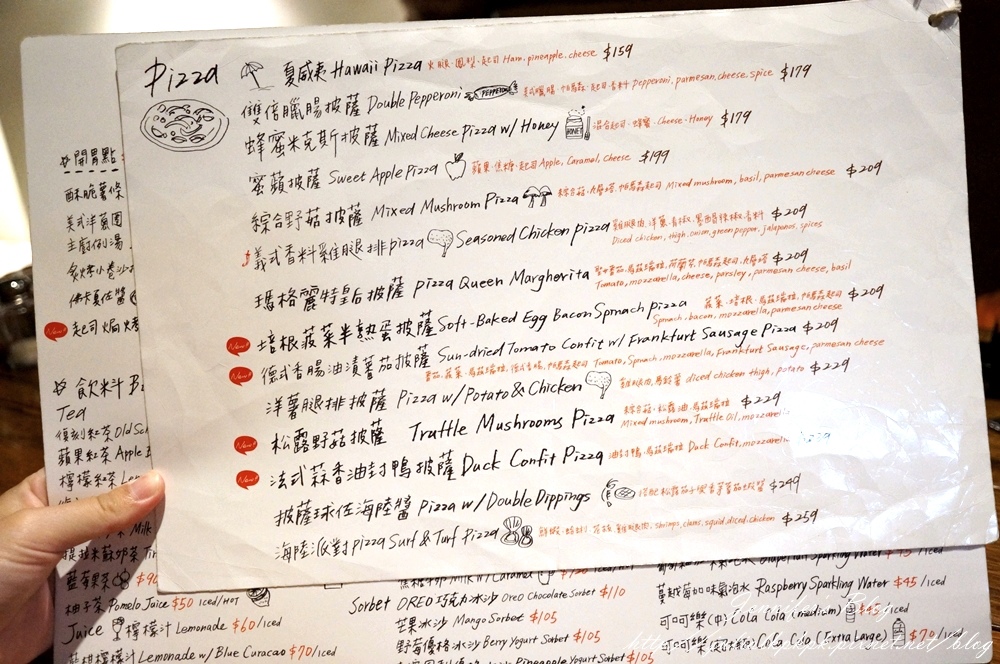 Pizza
夏威夷 Hawaii Pizza 火腿.鳳梨.起司 Ham, pineapple, cheese $159
雙倍臘腸披薩 Double Pepperoni PEPPERONI 美式臘腸.帕瑪森.起司.香料 Pepperoni, parmesan, cheese, spice $179
蜂蜜米克斯披薩 Mixed Cheese Pizza w/ Honey HONEY 混合起司.蜂蜜.Cheese.Honey $179
蜜蘋披薩 Sweet Apple Pizza 蘋果.焦糖.起司 Apple, Caramel, Cheese $199
綜合野菇披薩 Mixed Mushroom Pizza 綜合菇.九層塔.帕瑪森起司 Mixed mushroom, basil, parmesan cheese $209
義式香料雞腿排pizza Seasoned Chicken pizza 雞腿肉.洋蔥.青椒.墨西哥辣椒.香料 $209
Diced chicken, thigh, onion, green pepper, jalapenos, spices
瑪格麗特皇后披薩 pizza Queen Margherita $209
Tomato, mozzarella, cheese, parsley, parmesan cheese, basil
New! 培根菠菜半熟蛋披薩 Soft-Baked Egg Bacon Spinach pizza 菠菜.培根.馬茲瑞拉.帕瑪森起司 $209
Spinach, bacon, mozzarella, parmesan cheese
New! 德式香腸油漬蕃茄披薩 Sun-dried Tomato Confit w/ Frankfurt Sausage Pizza $209
Tomato, Spinach, mozzarella, Frankfurt Sausage, parmesan cheese
洋薯腿排披薩 Pizza w/ Potato & Chicken 雞腿肉.馬鈴薯 diced chicken thigh, potato $229
New! 松露野菇披薩 Truffle Mushrooms Pizza 綜合菇.松露油.馬茲瑞拉 $229
Mixed mushroom, Truffle Oil, mozzarella
New! 法式蒜香油封鴨披薩 Duck Confit Pizza 油封鴨.馬茲瑞拉 Duck Confit, mozzarella
披薩球佐海陸醬 Pizza w/ Double Dippings $249
海陸派對pizza Surf & Turf Pizza shrimps, clams, squid, diced chicken $259
開胃點
酥脆薯條
美式洋蔥圈
主廚例湯
炙烤小卷沙
佛卡夏佐醬
New! 起司焗烤
飲米斗
Tea
復刻紅茶 Old Sc
蘋果紅茶 Apple
檸檬紅茶 Lem
Milk
提拉米蘇奶茶 Tir
藍莓果茶 $90
柚子茶 Pomelo Juice $50 iced/Hot
Juice 檸檬汁 Lemonade $60/iced
Lemonade w/ Blue Curacao $70/iced
Milk w/ Caramel $120 iced
Sorbet OREO巧克力冰沙 Oreo Chocolate Sorbet $110
芒果冰沙 Mango Sorbet $105
野莓優格冰沙 Berry Yogurt Sorbet $105
Pineapple Yogurt Sorbet $105
Sparkling Water $45 /iced
蔓越莓口味氣泡水 Raspberry Sparkling Water $45/iced
可口可樂(中) Cola Cola (medium) $45/iced
Cola Cola (Extra Large) $79/iced